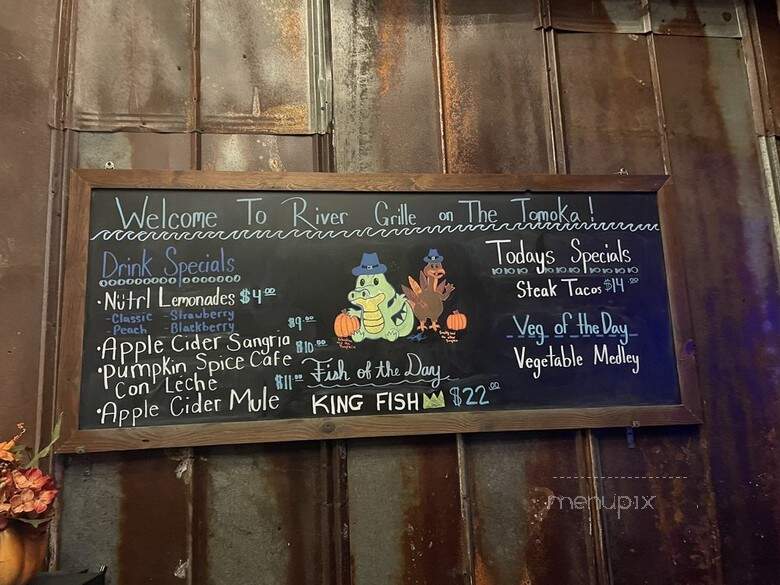 Welcome To River Grille on The Tomoka!
Drink Specials
• Nütrl Lemonades $4.00
- Classic - Strawberry
- Peach - Blackberry
• Apple Cider Sangria $9.00
• Pumpkin Spice Cafe Con Leche $10.00
• Apple Cider Mule $11.00
Fish of the Day
KING FISH $22.00
Todays Specials
Steak Tacos $14.00
Veg of the Day
Vegetable Medley
menupix